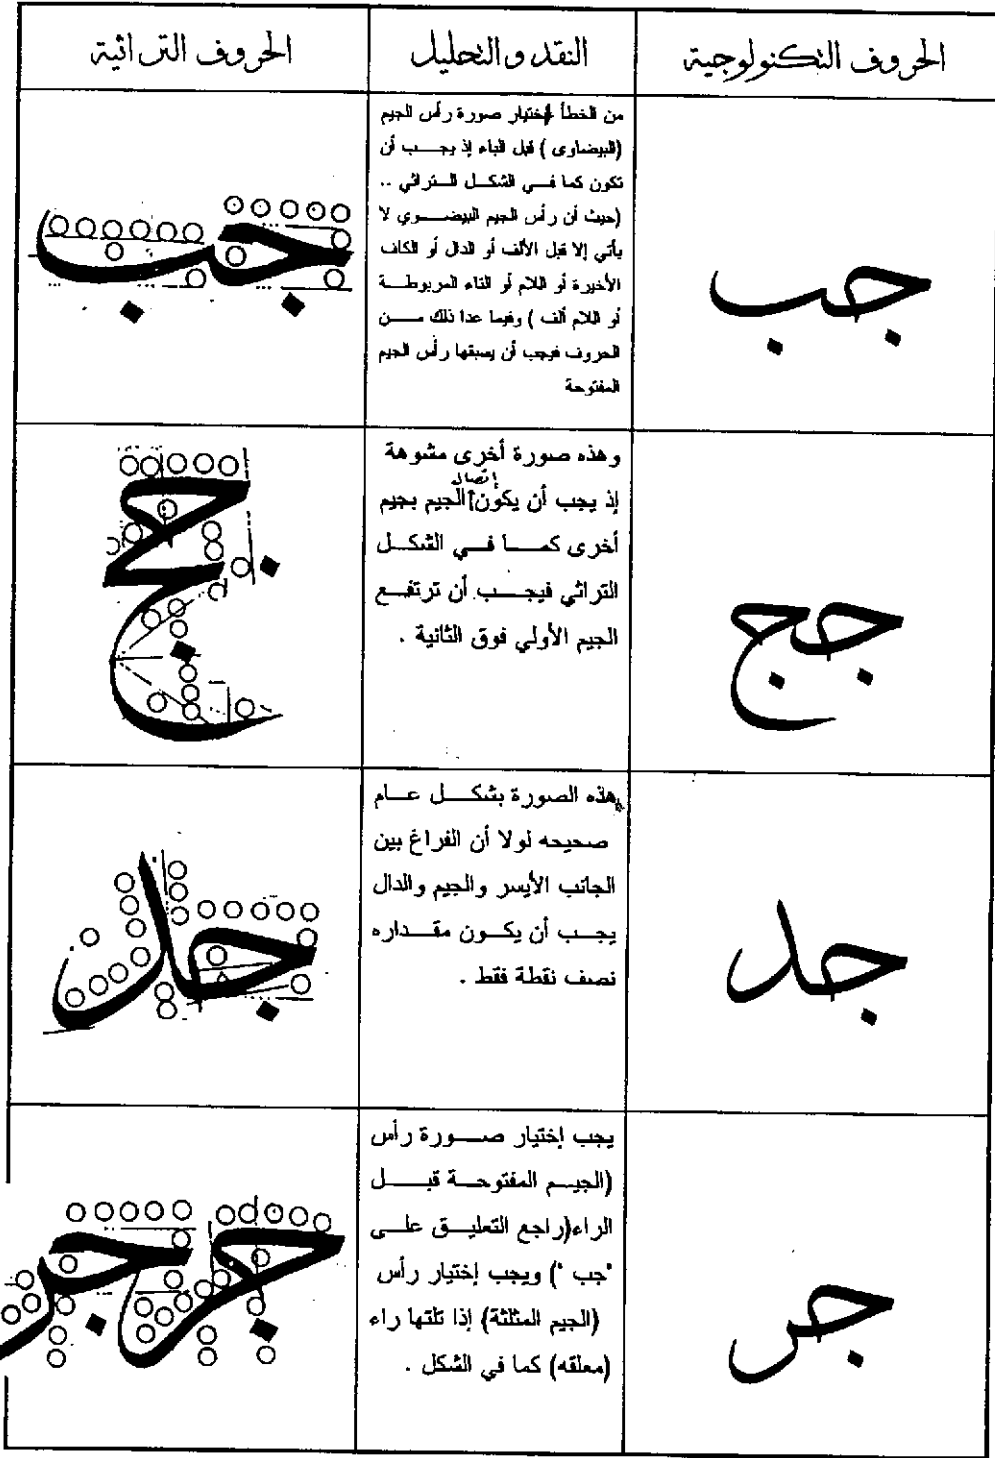 الحروف التكنولوجية
النقد والتحليل
الحروف التراثية
جب
من الخطأ إختيار صورة رأس الجيم
(البيضاوى ) قبل الباء إذ يجب أن
تكون كما في الشكل التراثي ..
(حيث أن رأس الجيم البيضوي لا
يأتي إلا قبل الألف أو الدال أو الكاف
الأخيرة أو اللام أو التاء المربوطة
أو اللام ألف ) وفيما عدا ذلك من
الحروف فيجب أن يسبقها رأس الجيم
المفتوحة
جب
جج
وهذه صورة أخرى مشوهة
إذ يجب أن يكون إتصال الجيم بجيم
أخرى كما في الشكل
التراثي فيجب أن ترتفع
الجيم الأولي فوق الثانية .
جج
جد
هذه الصورة بشكل عام
صحيحه لولا أن الفراغ بين
الجانب الأيسر والجيم والدال
يجب أن يكون مقداره
نصف نقطة فقط .
جد
جر
يجب إختيار صورة رأس
(الجيم المفتوحة قبل
الراء(راجع التعليق على
"جب ") ويجب إختيار رأس
(الجيم المثلثة) إذا تلتها راء
(معلقه) كما في الشكل .
جر جر